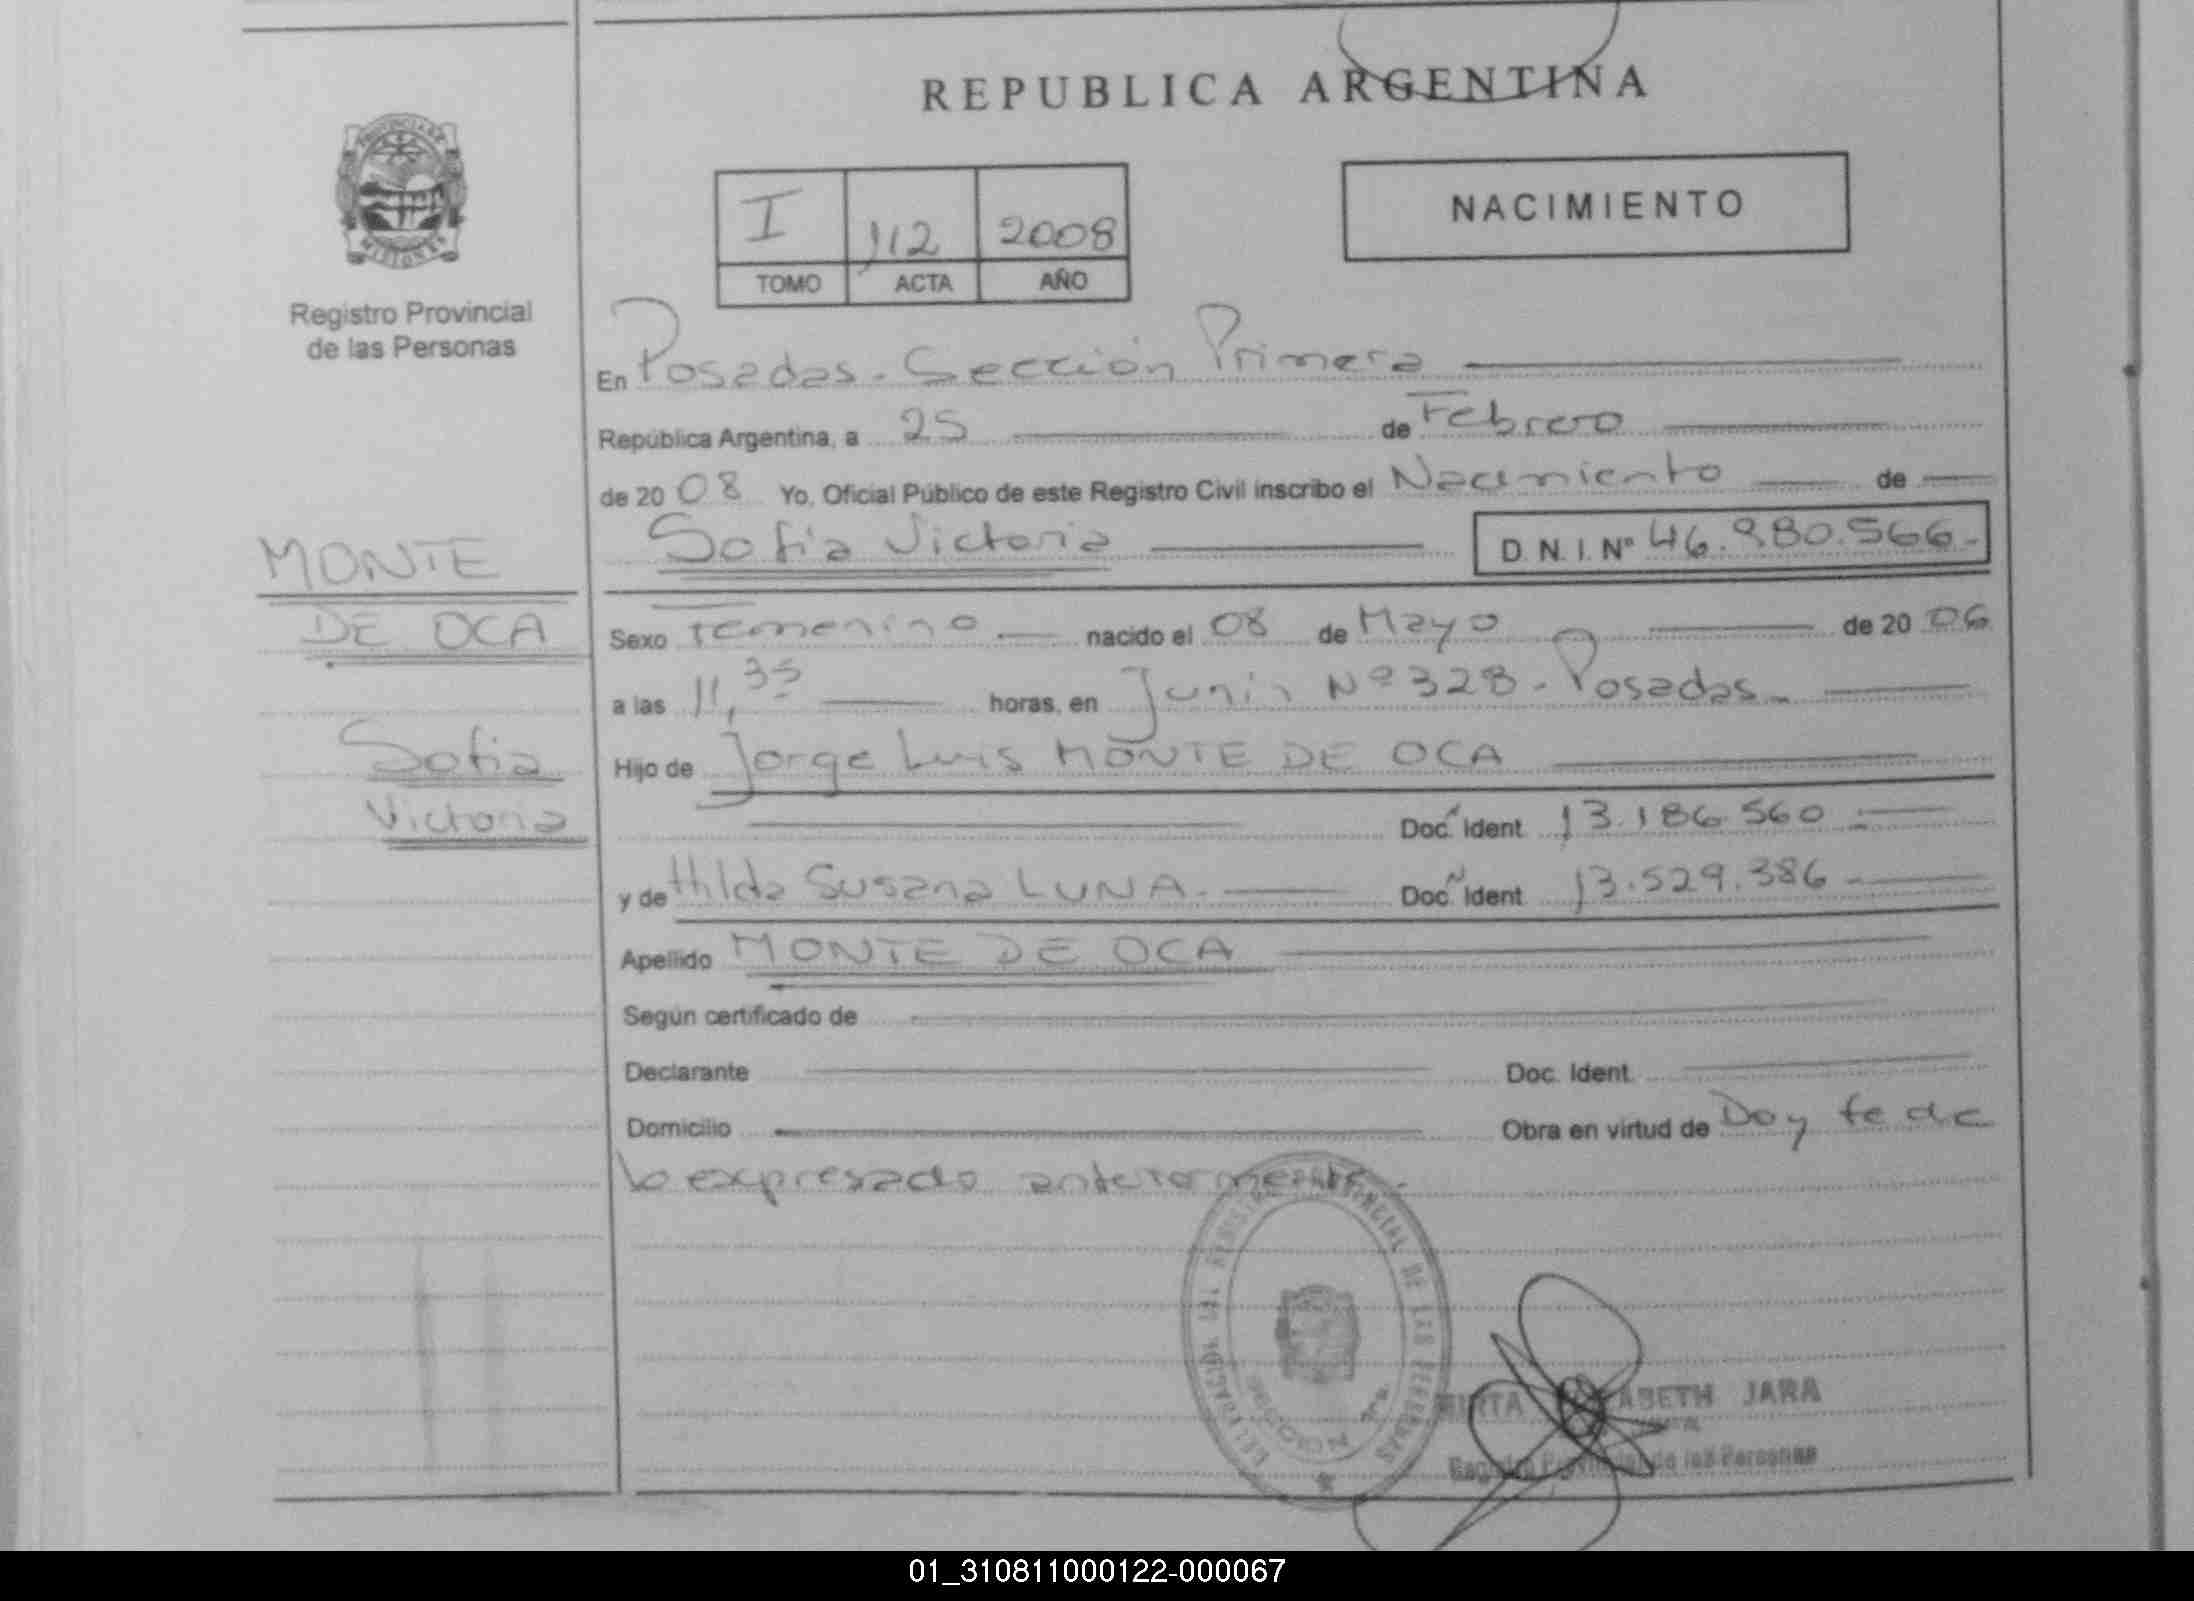 REPUBLICA ARGENTINA
NACIMIENTO
I 112 2008
TOMO ACTA AÑO
Registro Provincial
de las Personas
En Posadas. Sección Primera
República Argentina, a 25 de Febrero
de 20 08 Yo, Oficial Público de este Registro Civil inscribo el Nacimiento de
Sofia Victoria D.N.I. Nº 46.980.566-
MONTE
DE OCA
Sofia
Victoria
Sexo Femenino nacido el 08 de Mayo de 20 06
a las 11,35 horas, en Junin Nº 328 - Posadas-
Hijo de Jorge Luis MONTE DE OCA
Doc. Ident. 13.186.560-
y de Hilda Susana LUNA- Doc. Ident. 13.529.386-
Apellido MONTE DE OCA
Según certificado de
Declarante Doc. Ident.
Domicilio Obra en virtud de Doy fe de
lo expresado anteriormente.
JARA
Registro Provincial de las Personas
01_310811000122-000067